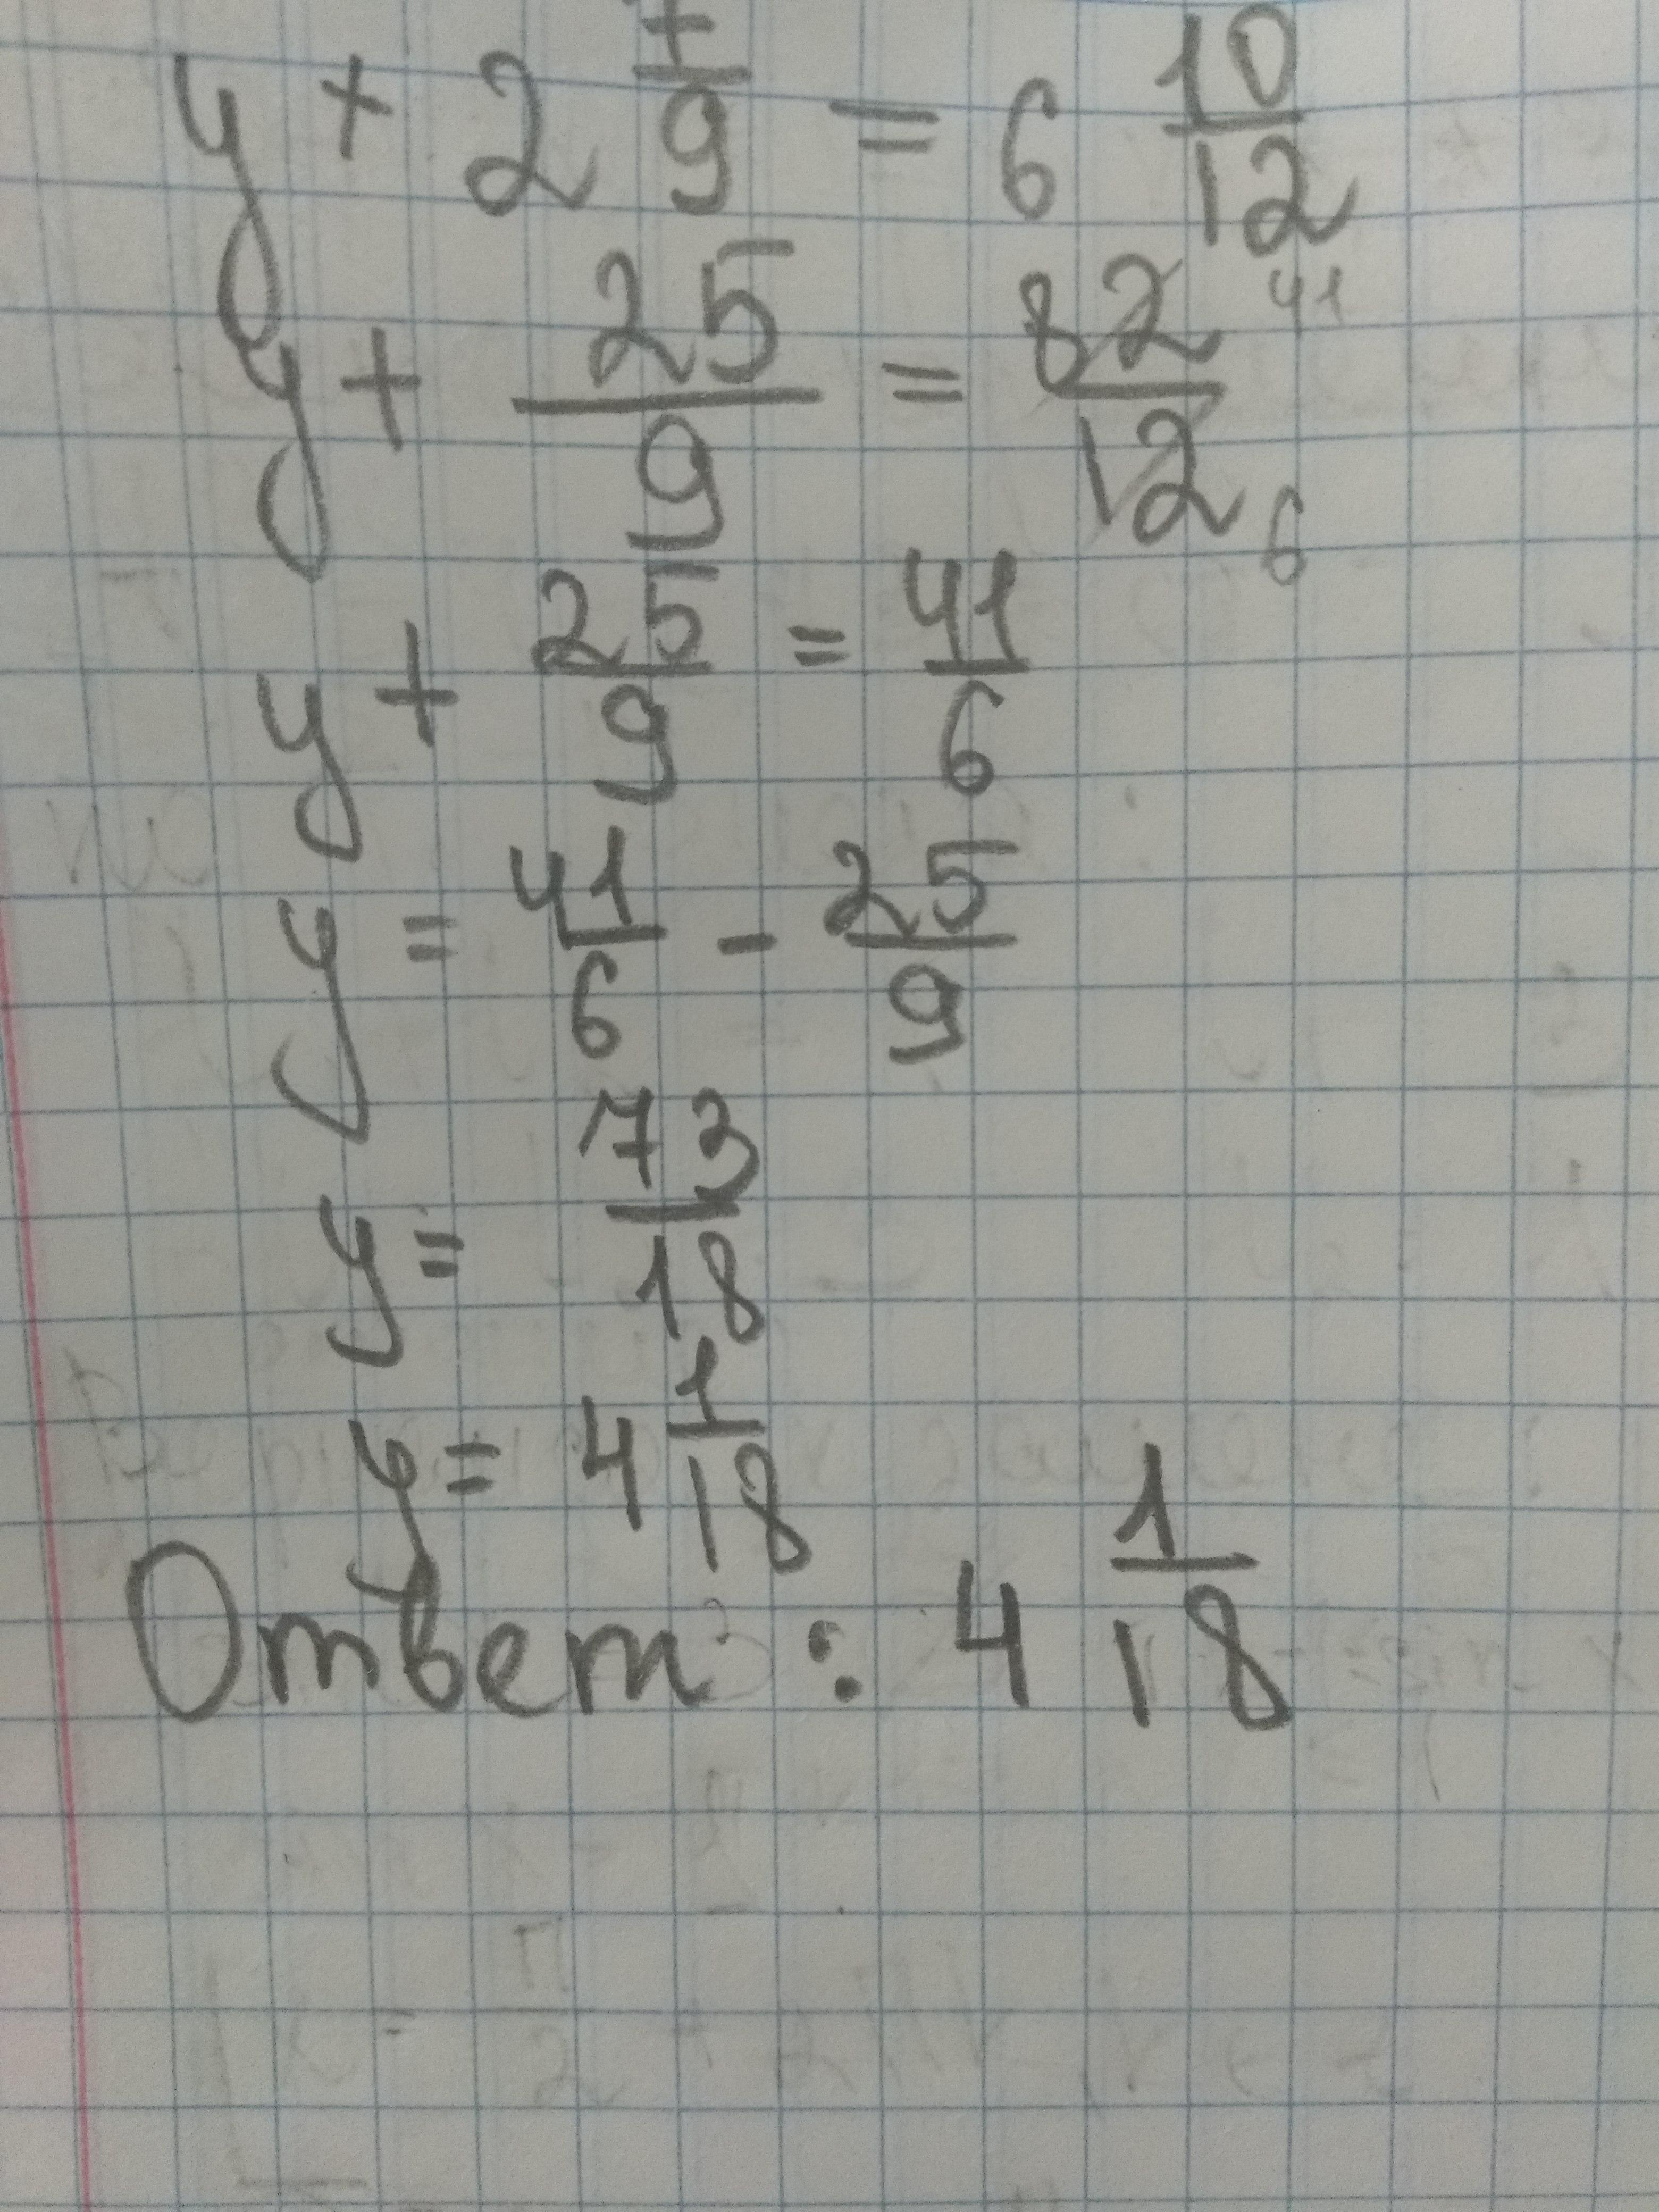 y + 2 7/9 = 6 10/12
y + 25/9 = 82/12 41 6
y + 25/9 = 41/6
y = 41/6 - 25/9
y = 73/18
y = 4 1/18
Ответ: 4 1/18